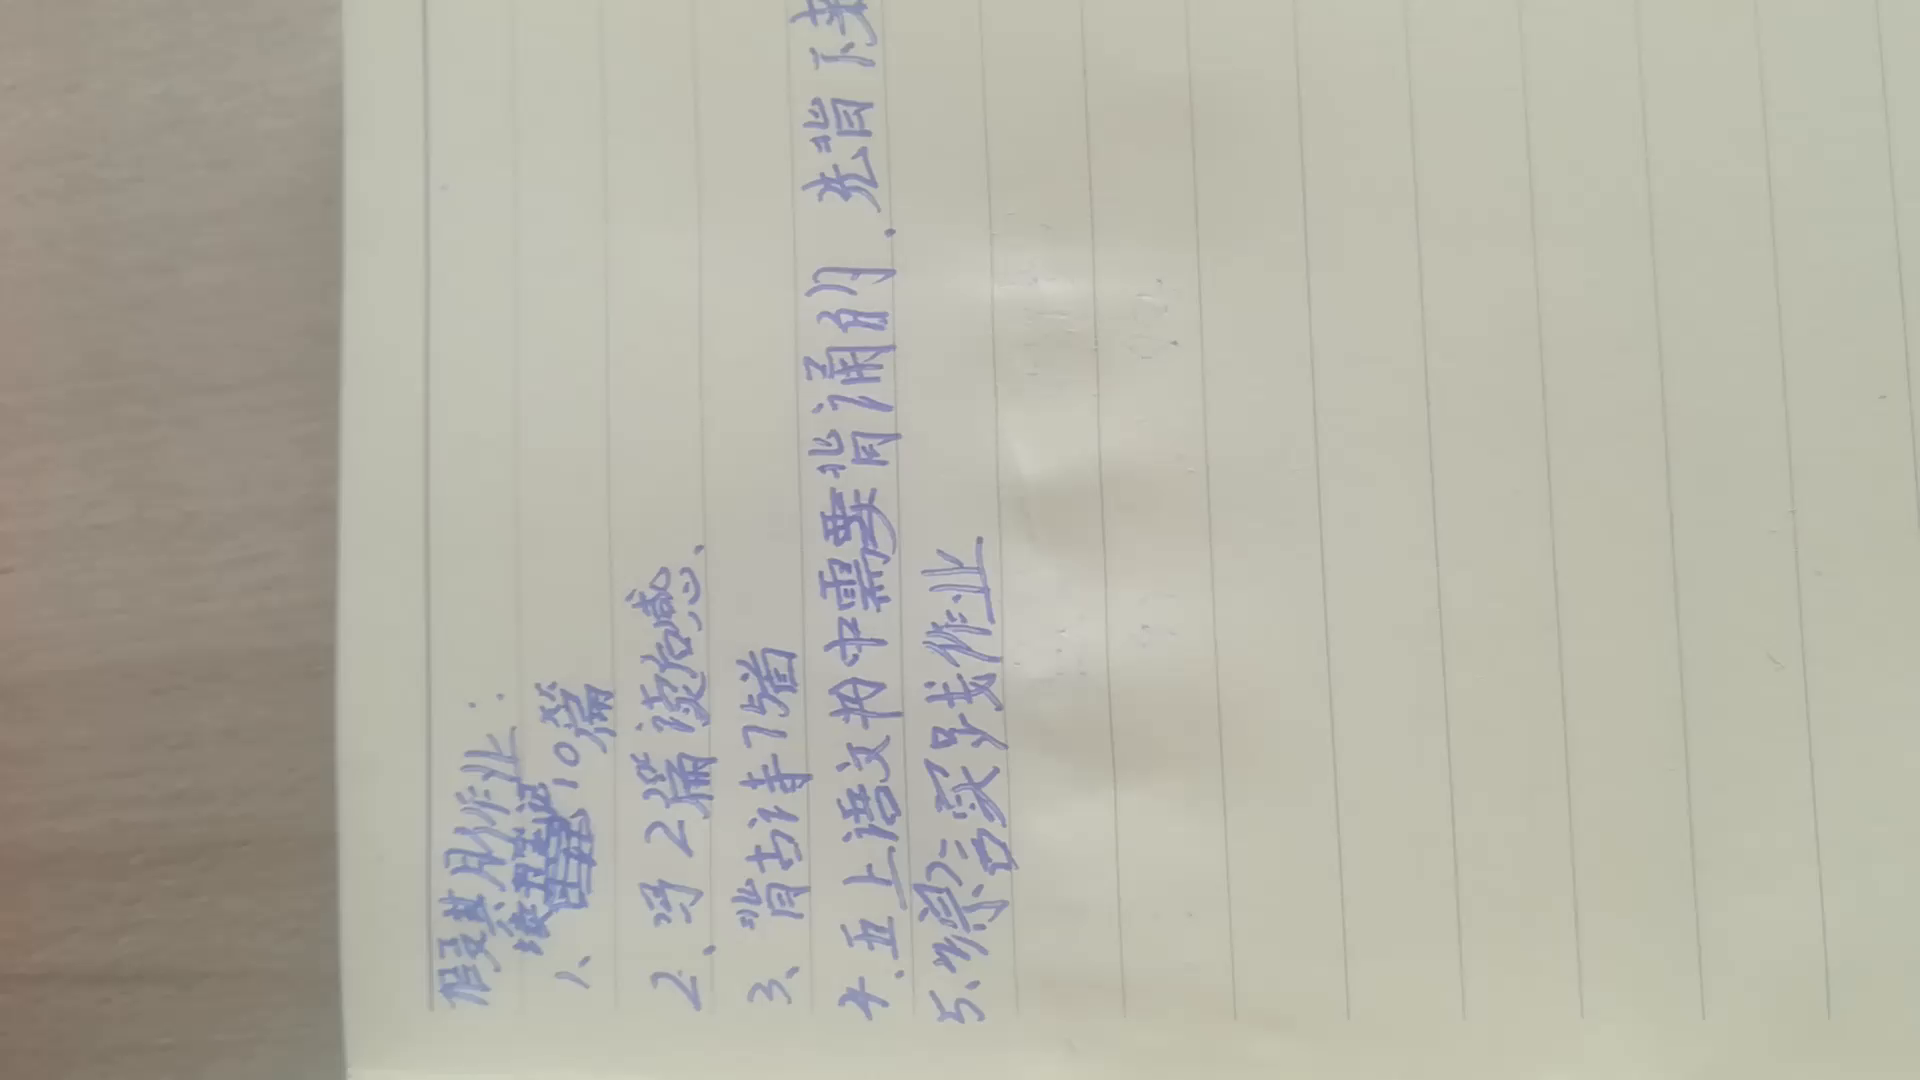 假期作业：
1、10篇
2、写2篇读后感、
3、背古诗75首
4、五上语文书中需要背诵的.先背下来
5、综合实践作业